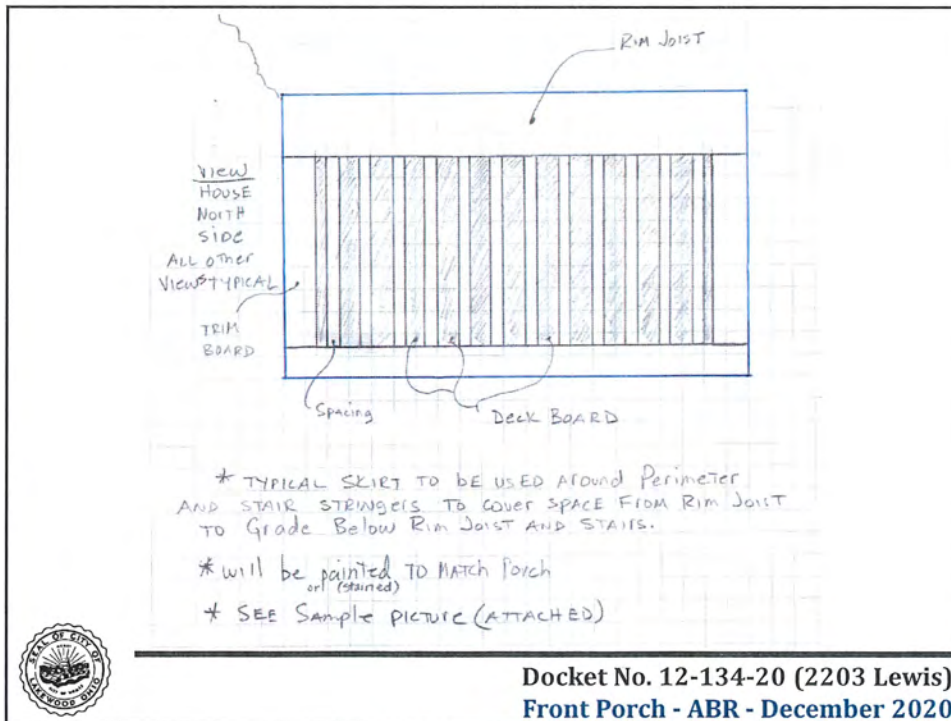 RIM JOIST
View
HOUSE
NORTH
SIDE
ALL OTHER
VIEWS TYPICAL
TRIM
BOARD
Spacing
DECK BOARD
* TYPICAL SKIRT TO BE USED Around Perimeter
AND STAIR STRINGERS TO COVER SPACE FROM RIM JOIST
TO Grade Below RIM JOIST AND STAIRS.
* will be painted TO MATCH Porch
or (stained)
* SEE Sample PICTURE (ATTACHED)
SEAL OF CITY OF
LAKEWOOD OHIO
Docket No. 12-134-20 (2203 Lewis)
Front Porch - ABR - December 2020